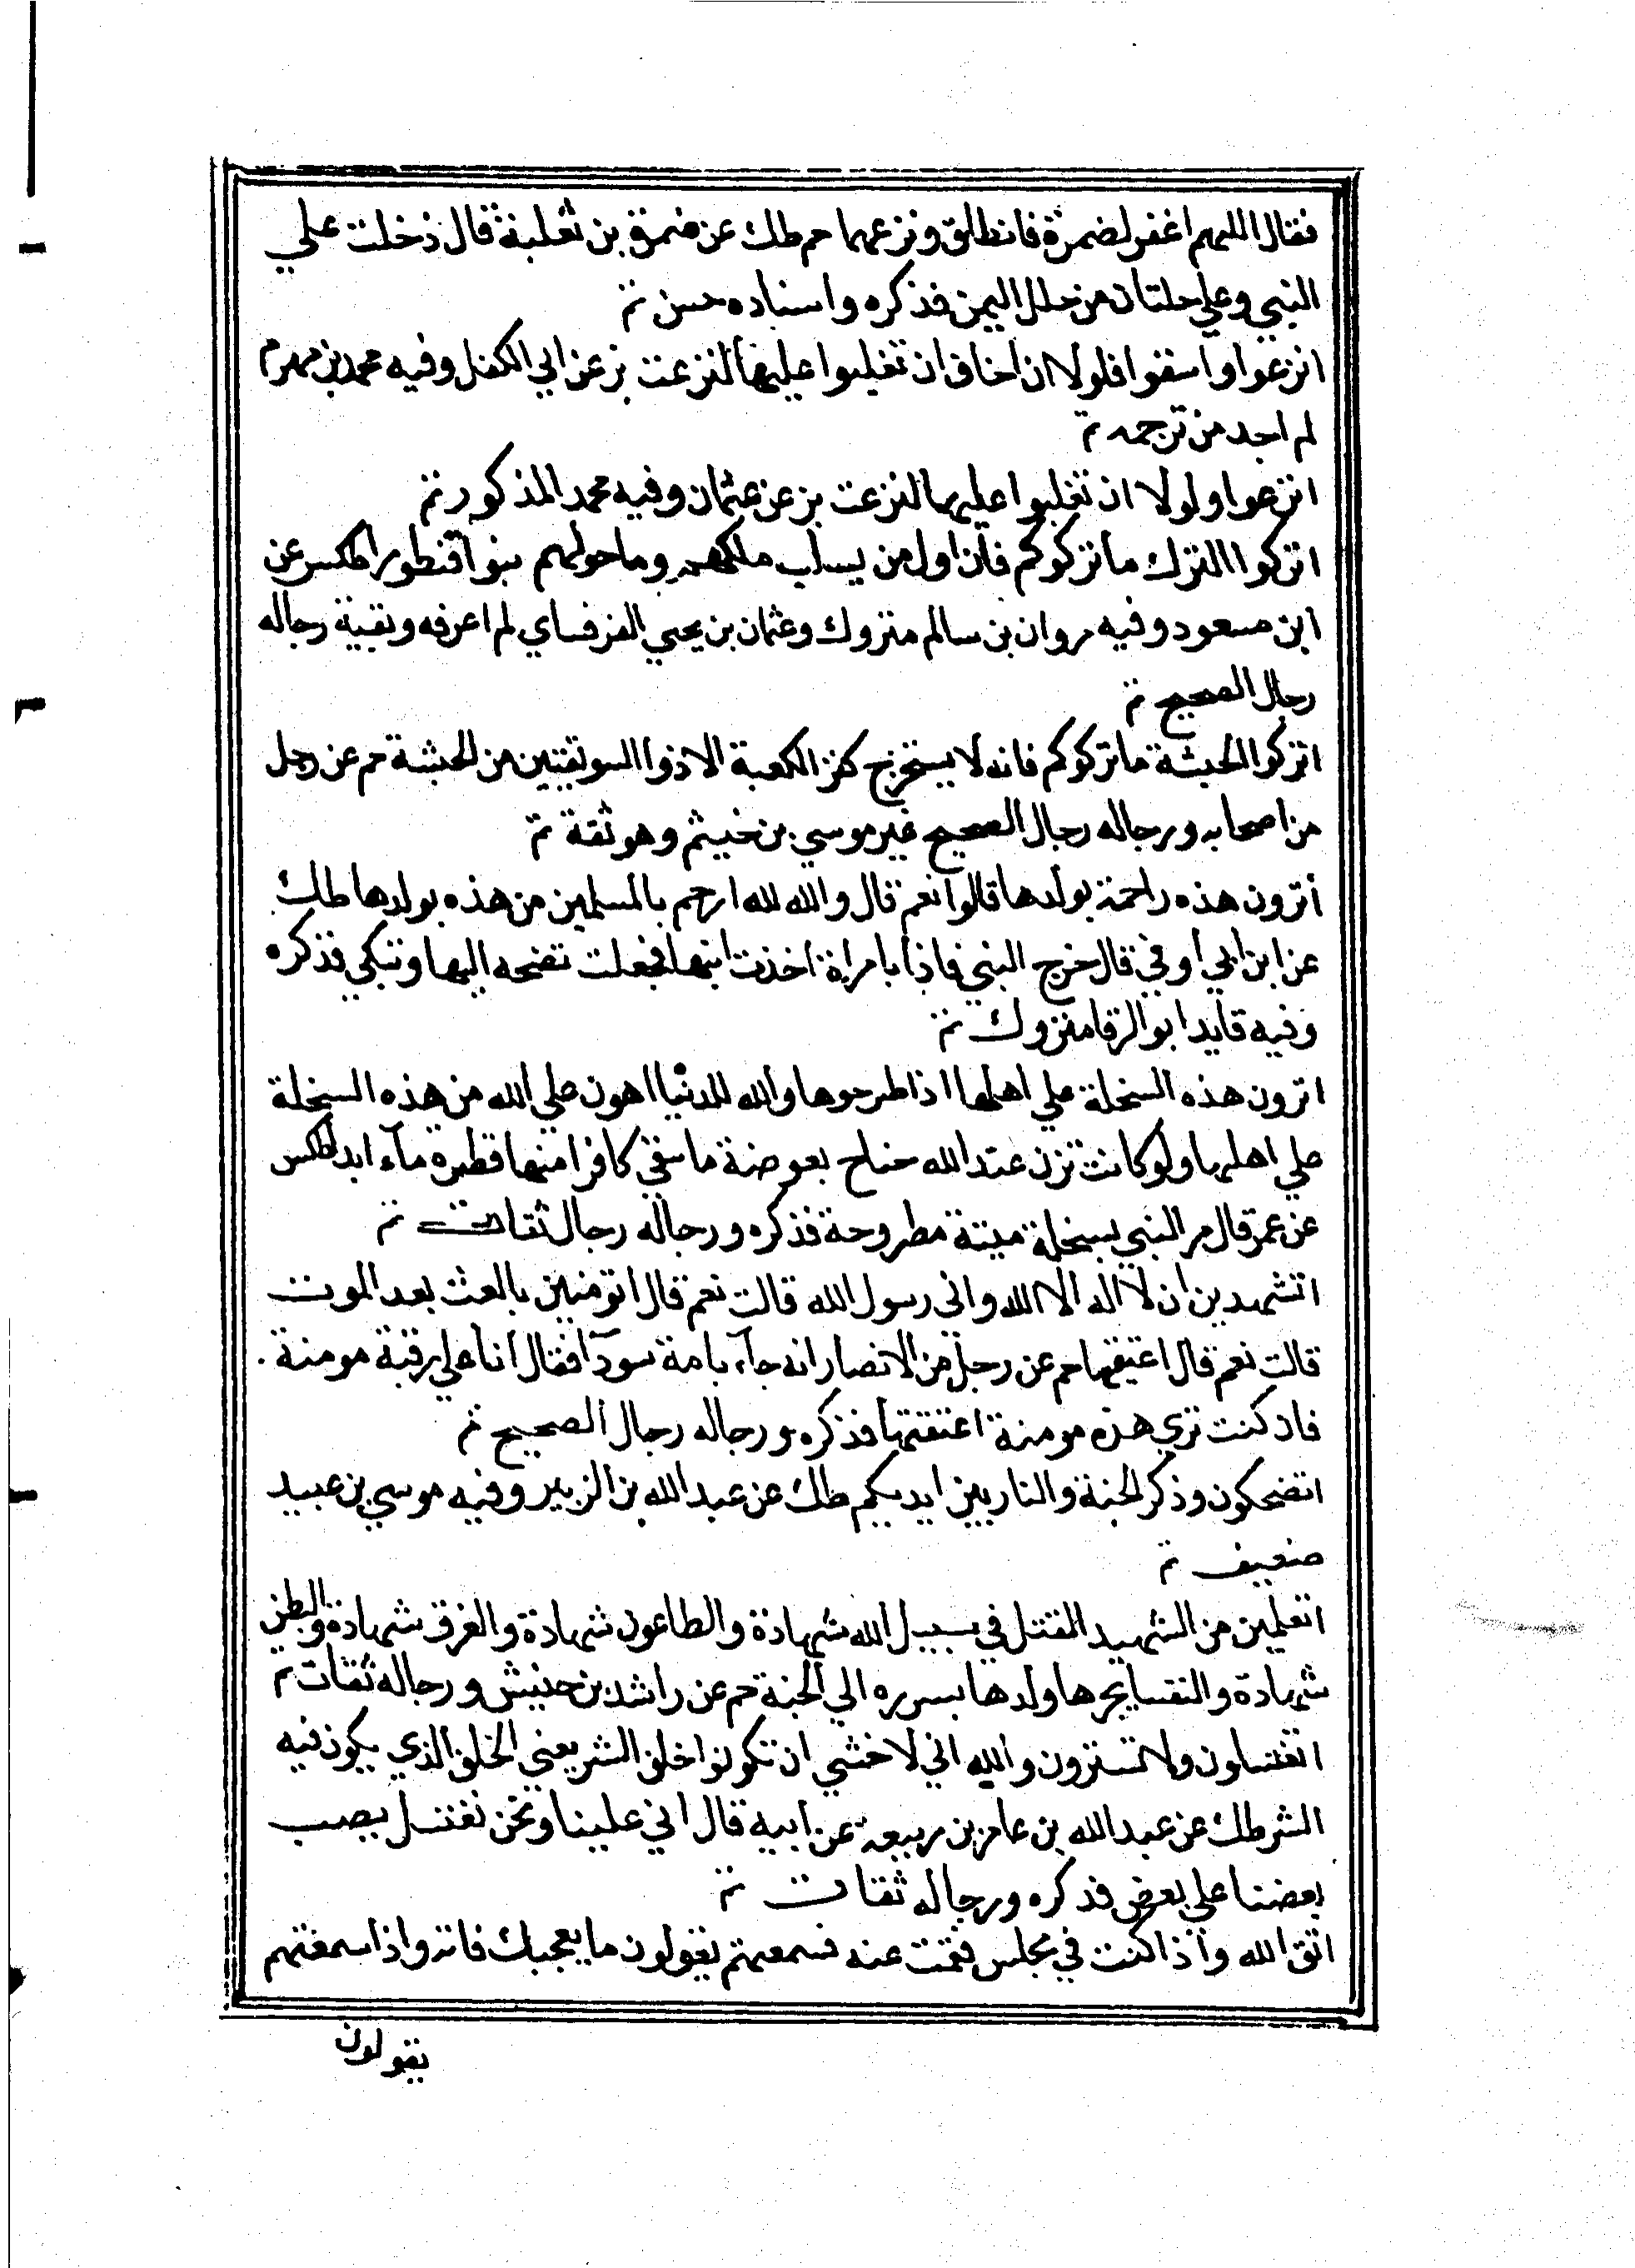 فقال اللهم اغفر لضمرة فانطلق ونزعهما حم طك عن ضمرة بن ثعلبة قال دخلت علي
النبي وعلي حلتان من حلل اليمن فذكره واسناده حسن تم
انزعوا واسقوا فلولا ان اخاف ان تغلبوا عليها لنزعت بز عن ابي الكفل وفيه محمد بن مهزم
لم اجد من ترجمه تم
انزعوا ولولا ان تغلبوا عليها لنزعت بز عن عثمان وفيه محمد المذكور تم
اتركوا الترك ما تركوكم فان اول من يسلب ملكهم وما حولهم بنوا قنطورا طكس عن
ابن مسعود وفيه مروان بن سالم متروك وعثمان بن يحيي القرقساي لم اعرفه وبقية رجاله
رجال الصحيح تم
اتركوا الحبشة ما تركوكم فانه لا يستخرج كنز الكعبة الا ذوا السويقتين من الحبشة حم عن رجل
من اصحابه ورجاله رجال الصحيح غير موسي بن خيثم وهو ثقة تم
أترون هذه راحمة بولدها قالوا نعم قال والله لله ارحم بالمسلمين من هذه بولدها طك
عن ابن ابي أوفي قال خرج النبي فاذا بامراة اخذت ابنها فجعلت تضحه اليها وتبكي فذكره
وفيه قايد ابو الرقا متروك تم
اترون هذه السخلة علي اهلها اذا طرحوها والله للدنيا اهون علي الله من هذه السخلة
علي اهلها ولو كانت تزن عند الله جناح بعوضة ما سقي كافرا منها قطرة مآء ابدا طكس
عن عمر قال مر النبي بسخلة ميتة مطروحة فذكره ورجاله رجال ثقات تم
اتشهدين ان لا اله الا الله واني رسول الله قالت نعم قال اتومنين بالعث بعد الموت
قالت نعم قال اعتقها حم عن رجل من الانصار انه جآء بامة سودآ فقال أنا علي رقبة مومنة .
فاذ كنت تري هذه مومنة اعتقتها فذكره ورجاله رجال الصحيح تم
اتضحكون وذكر الجنة والنار بين ايديكم طك عن عبد الله بن الزبير وفيه موسي بن عبيد
ضعيف تم
اتعلمين من الشهيد القتل في سبيل الله شهادة والطاعون شهادة والغرق شهادة والبطن
شهادة والنفسا يجرها ولدها بسرره الي الجنة حم عن راشد بن حنيش ورجاله ثقات تم
اتغتسلون ولا تستترون والله اني لاخشي ان تكونوا خلق الشر يعني الخلق الذي يكون فيه
الشر طك عن عبد الله بن عامر بن ربيعة عن ابيه قال اتي علينا ونحن نغتسل يصب
بعضنا علي بعض فذكره ورجاله ثقات تم
اتق الله وأذا كنت في مجلس فقمت عنه فسمعتهم يقولون ما يعجبك فاته واذا سمعتهم
يقولون